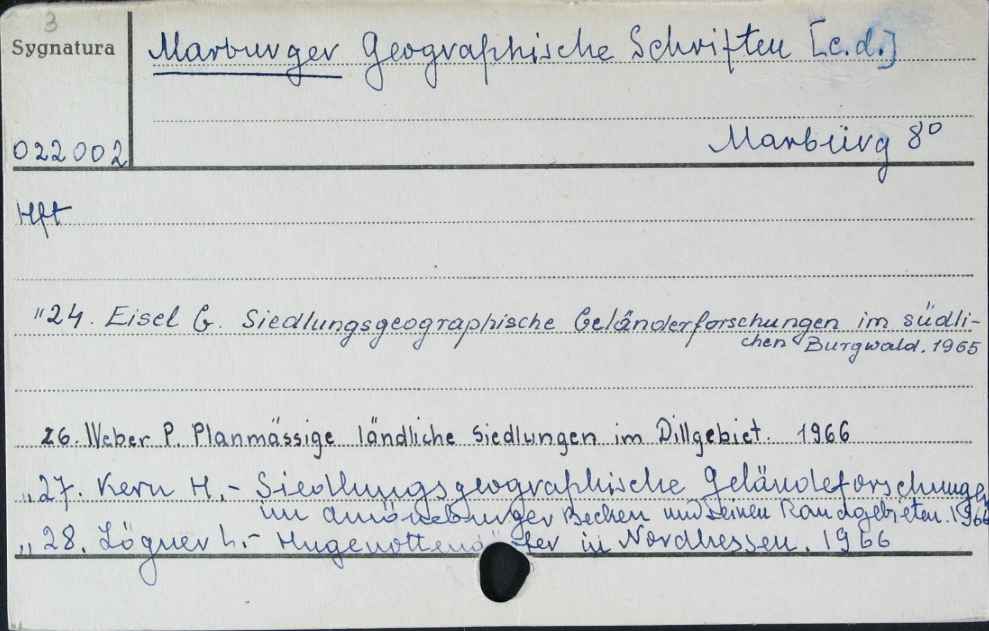 3
Sygnatura
Marburger Geographische Schriften [c.d.]
Marburg 8°
022002
Hft
"24. Eisel G. Siedlungsgeographische Geländerforschungen im südli-
chen Burgwald. 1965
26. Weber P. Planmässige ländliche Siedlungen im Dillgebiet. 1966
„27. Kern H.- Siedlungsgeographische Geländeforschungen
im Amöneburger Becken und seinen Randgebieten. 1966
„28. Zögner L.- Hugenottendörfer in Nordhessen. 1966